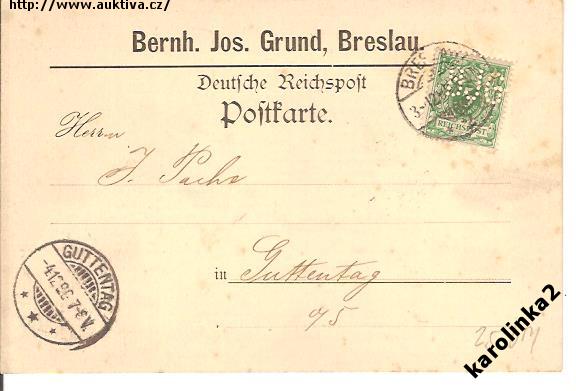 http://www.auktiva.cz/
Bernh. Jos. Grund, Breslau.
Deutsche Reichspost
Postkarte.
BRES
REICHSPOST
Herrn
J.
in Guttentag
GUTTENTAG
karolinka2